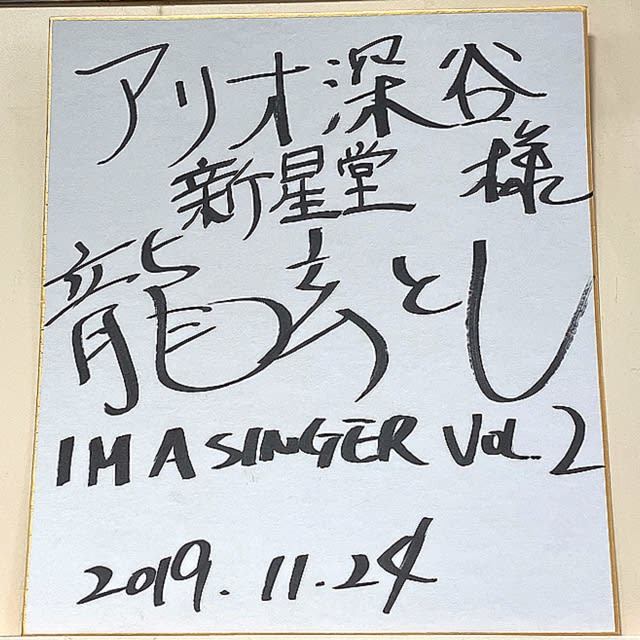 アリオ深谷
新星堂 様
龍玄とし
IM A SINGER VOL.2
2019.11.24